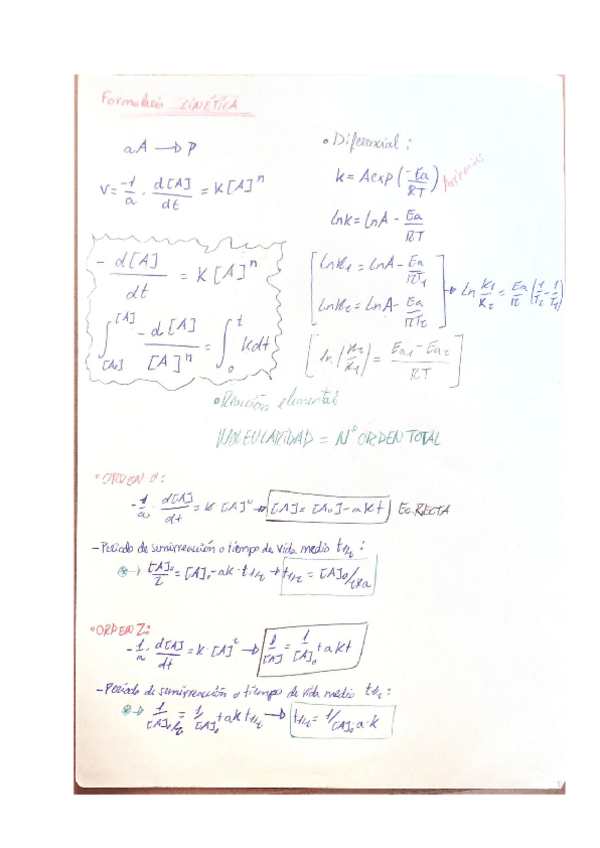 Formulario CINÉTICA
aA → P
v = -1/a · d[A]/dt = K[A]^n
- d[A]/dt = K[A]^n
∫_[A₀]^[A] -d[A]/[A]^n = ∫_0^t kdt
• Diferencial:
k = A exp(-Ea/RT) Arrhenius
lnk = lnA - Ea/RT
[lnk₁ = lnA - Ea/RT₁
lnk₂ = lnA - Ea/RT₂] → ln K₁/K₂ = Ea/R (1/T₂ - 1/T₁)
[ln(k₂/k₁) = Ea₁ - Ea₂/RT]
• Reacción elemental
MOLECULARIDAD = Nº ORDEN TOTAL
• ORDEN 0:
-1/a · d[A]/dt = k·[A]⁰ → [A] = [A₀] - akt Ec. RECTA
- Periodo de semirreacción o tiempo de vida medio t1/2:
→ [A]₀/2 = [A]₀ - ak·t1/2 → t1/2 = [A]₀/2ka
• ORDEN 2:
-1/a · d[A]/dt = k·[A]² → 1/[A] = 1/[A]₀ + akt
- Periodo de semirreacción o tiempo de vida medio t1/2:
→ 1/[A]₀/2 = 1/[A]₀ + akt1/2 → t1/2 = 1/[A]₀a·k